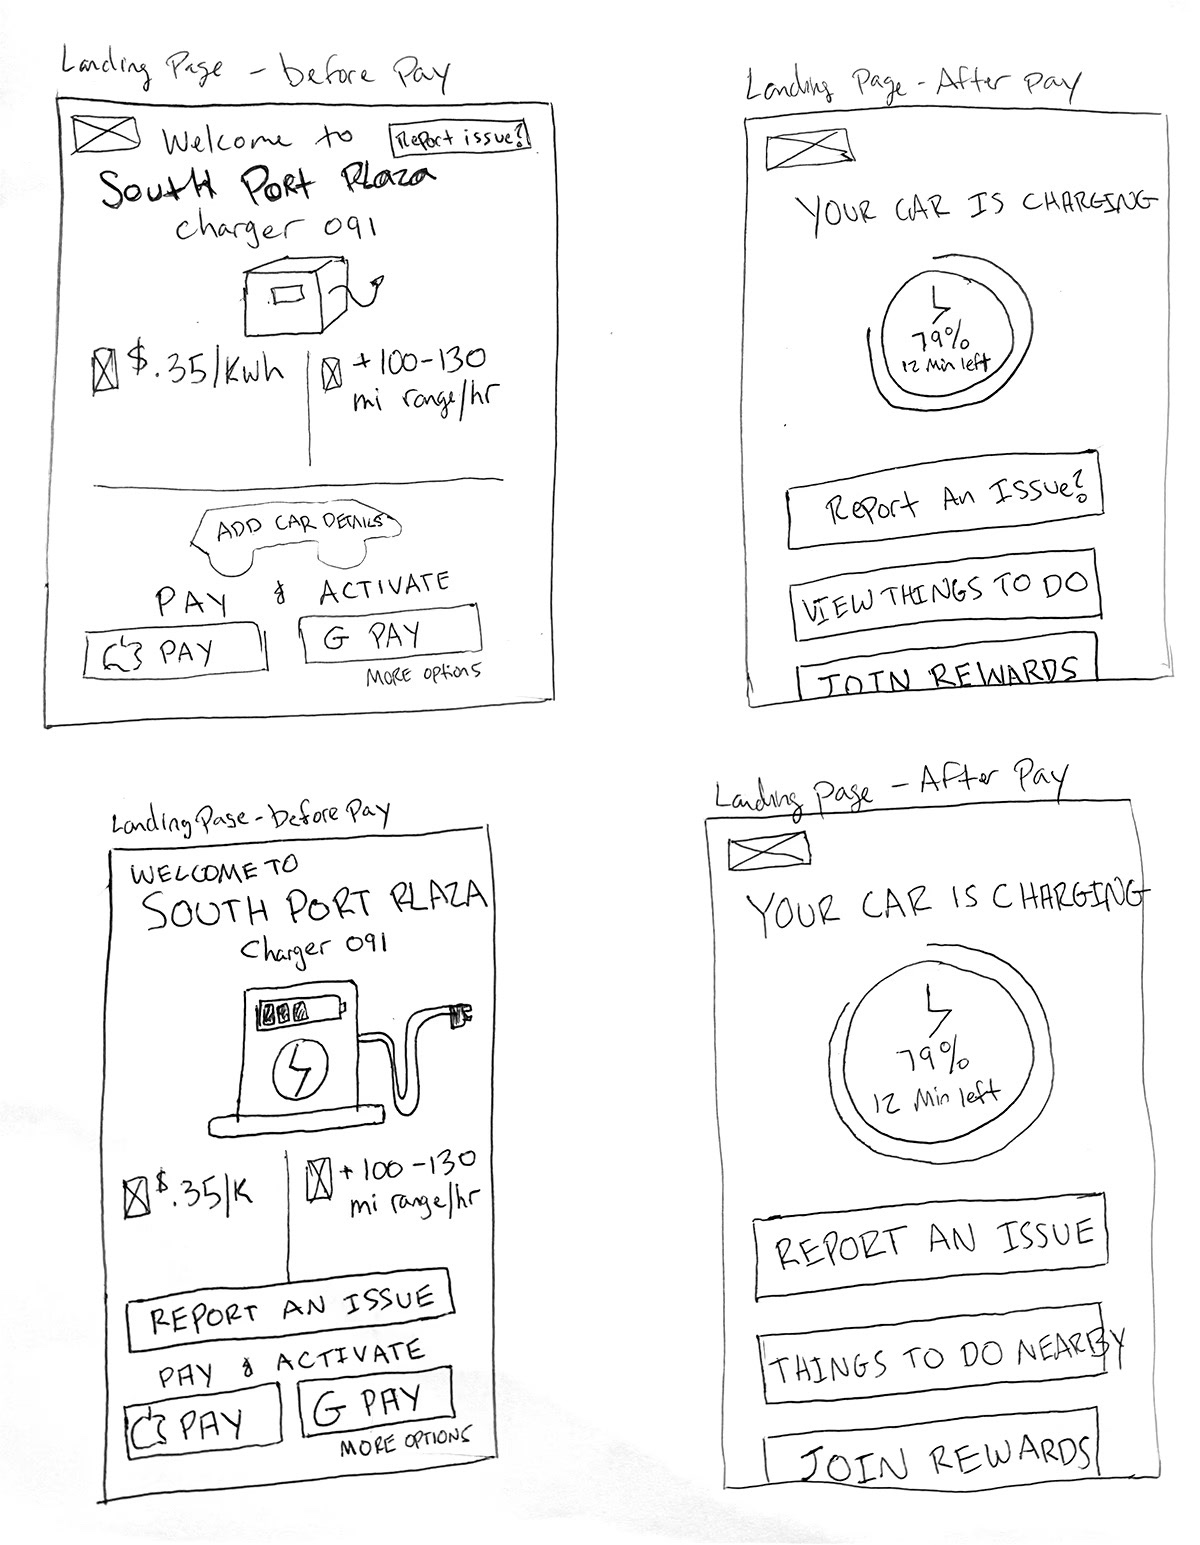 Landing Page - before Pay
Welcome to
Report issue?
South Port Plaza
charger 091
$.35/Kwh
+100-130
mi range/hr
ADD CAR DETAILS
PAY & ACTIVATE
PAY
G PAY
MORE options
Landing Page - After pay
YOUR CAR IS CHARGING
79%
12 Min left
Report An Issue?
VIEW THINGS TO DO
JOIN REWARDS
Landing Page - before Pay
WELCOME TO
SOUTH PORT PLAZA
Charger 091
$.35/K
+100-130
mi range/hr
REPORT AN ISSUE
PAY & ACTIVATE
PAY
G PAY
MORE OPTIONS
Landing Page - After Pay
YOUR CAR IS CHARGING
79%
12 Min left
REPORT AN ISSUE
THINGS TO DO NEARBY
JOIN REWARDS